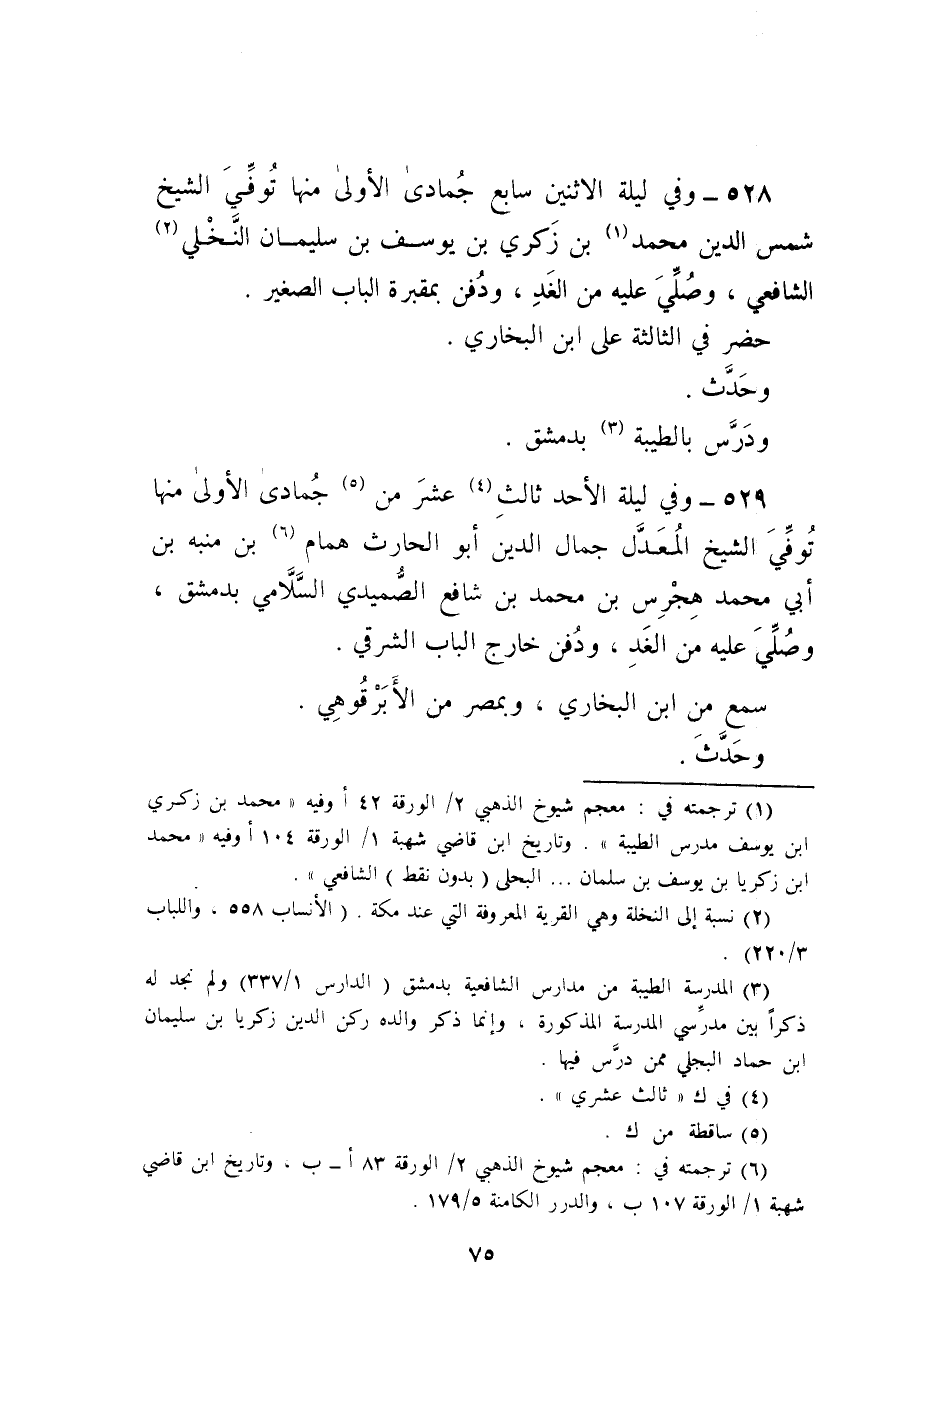 ٥٢٨ ـ وفي ليلة الاثنين سابع جُمادىٰ الأولىٰ منها تُوفِّيَ الشيخ
شمس الدين محمد (١) بن زَكري بن يوسـف بن سليمـان النَّخْلي (٢)
الشافعي ، وصُلِّيَ عليه من الغَدِ ، ودُفن بمقبرة الباب الصغير .
حضر في الثالثة على ابن البخاري .
وحَدَّث .
ودَرَّس بالطيبة (٣) بدمشق .
٥٢٩ ـ وفي ليلة الأحد ثالثِ (٤) عشرَ من (٥) جُمادىٰ الأولىٰ منها
تُوفِّيَ الشيخ المُعَدَّل جمال الدين أبو الحارث همام (٦) بن منبه بن
أبي محمد هِجْرِس بن محمد بن شافع الصُّميدي السَّلَّامي بدمشق ،
وصُلِّيَ عليه من الغَدِ ، ودُفن خارج الباب الشرقي .
سمع من ابن البخاري ، وبمصر من الأَبَرْقُوهِي .
وحَدَّثَ .
(١) ترجمته في : معجم شيوخ الذهبي ٢/ الورقة ٤٢ أ وفيه « محمد بن زكري
ابن يوسف مدرس الطيبة » . وتاريخ ابن قاضي شهبة ١/ الورقة ١٠٤ أ وفيه « محمد
ابن زكريا بن يوسف بن سلمان ... البحلى ( بدون نقط ) الشافعي » .
(٢) نسبة إلى النخلة وهي القرية المعروفة التي عند مكة . ( الأنساب ٥٥٨ ، واللباب
٣/٢٢٠) .
(٣) المدرسة الطيبة من مدارس الشافعية بدمشق ( الدارس ١/٣٣٧) ولم نجد له
ذكراً بين مدرِّسي المدرسة المذكورة ، وإنما ذكر والده ركن الدين زكريا بن سليمان
ابن حماد البجلي ممن درَّس فيها .
(٤) في ك « ثالث عشري » .
(٥) ساقطة من ك .
(٦) ترجمته في : معجم شيوخ الذهبي ٢/ الورقة ٨٣ أ ـ ب ، وتاريخ ابن قاضي
شهبة ١/ الورقة ١٠٧ ب ، والدرر الكامنة ٥/١٧٩ .
٧٥